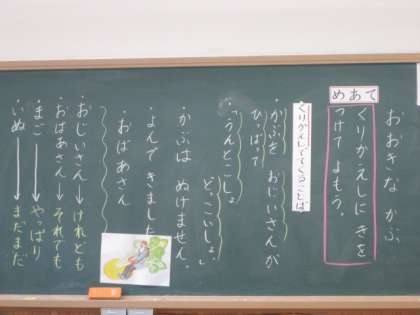 おおきな かぶ
めあて
くりかえしに きを
つけて よもう。
くりかえしでてくることば
・かぶを おじいさんが
ひっぱって
・「うんとこしょ
どっこいしょ」
・かぶは ぬけません。
・よんで きました
・おばあさん
・おじいさん→けれども
・おばあさん→それでも
・まご→やっぱり
・いぬ→まだまだ